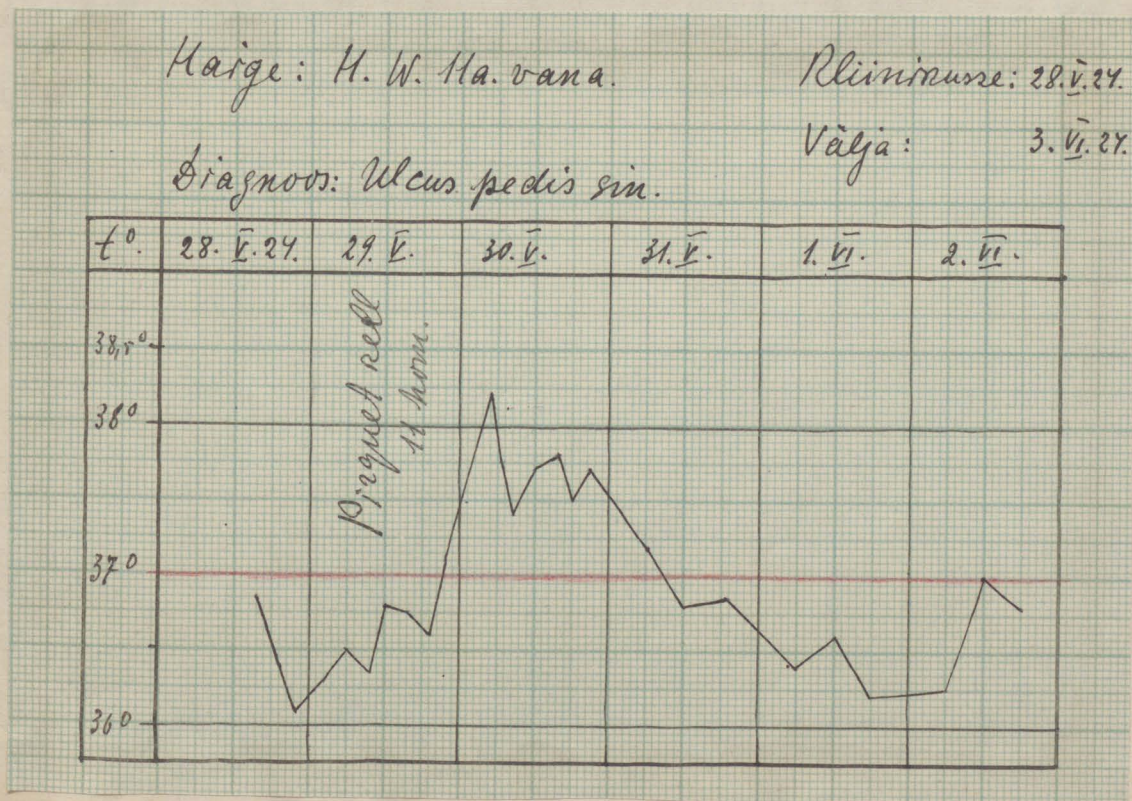 Haige: H. W. 11a. vana.
Kliinikusse: 28.V.24.
Välja: 3.VI.24.
Diagnoos: Ulcus pedis sin.
t°. 28.V.24. 29.V. 30.V. 31.V. 1.VI. 2.VI.
Pirquet kell
11 hom.
38,5°
38°
37°
36°